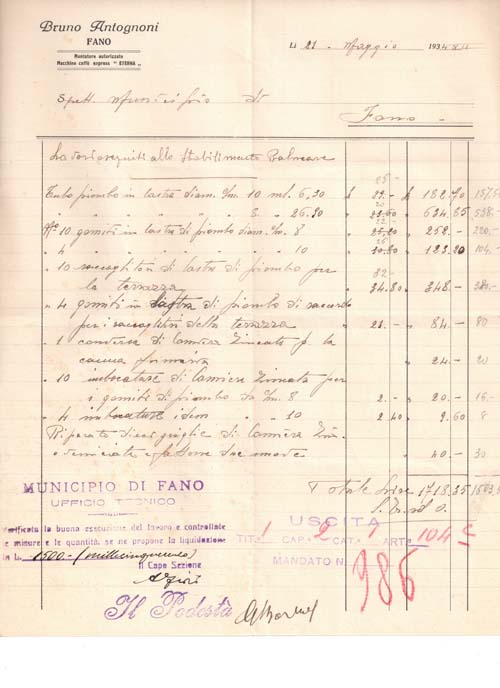 Bruno Antognoni
FANO
Montatore autorizzato
Macchine caffè espress " ETERNA "
Li 21 Maggio 1934
Spett. Municipio di
Fano
Lavori eseguiti allo Stabilimento Balneare
25 -
Tubo piombo in lastra diam. 10 ml. 6,30 £ 29.- £ 182.70 157,5
20
" " " " " 8 " 26.30 634,85
22.-
N° 10 gomiti in lastra di piombo diam. 8 252.- 220.-
26
" 4 " " " " " 10 123.20 104.-
" 10 raccoglitori di lastra di piombo per
32 -
la terrazza " 34.80 " 348.-
" 4 gomiti in lastra di piombo di raccordo
per i raccoglitori della terrazza " 21.- " 84.- 80
" 1 di Lamiera Zincata p. la
" 24.- 20
" 10 imboccature di Lamiera Zincata per
i gomiti di piombo da 8 " 2.- " 20.- 16.-
" 4 imboccature idem " 10 2.40 9.60 8
di Lamiera
" 40.- 30
Totale Lire 1718.35
MUNICIPIO DI FANO
UFFICIO TECNICO
Verificata la buona esecuzione del lavoro e controllate
e misure e le quantità, se ne propone la liquidazione
in L. 1500 - (millecinquecento)
Il Capo Sezione
USCITA
TIT. 1 CAP. 2 CAT. 1 ART. 104 C
MANDATO N. 986
Il Podestà